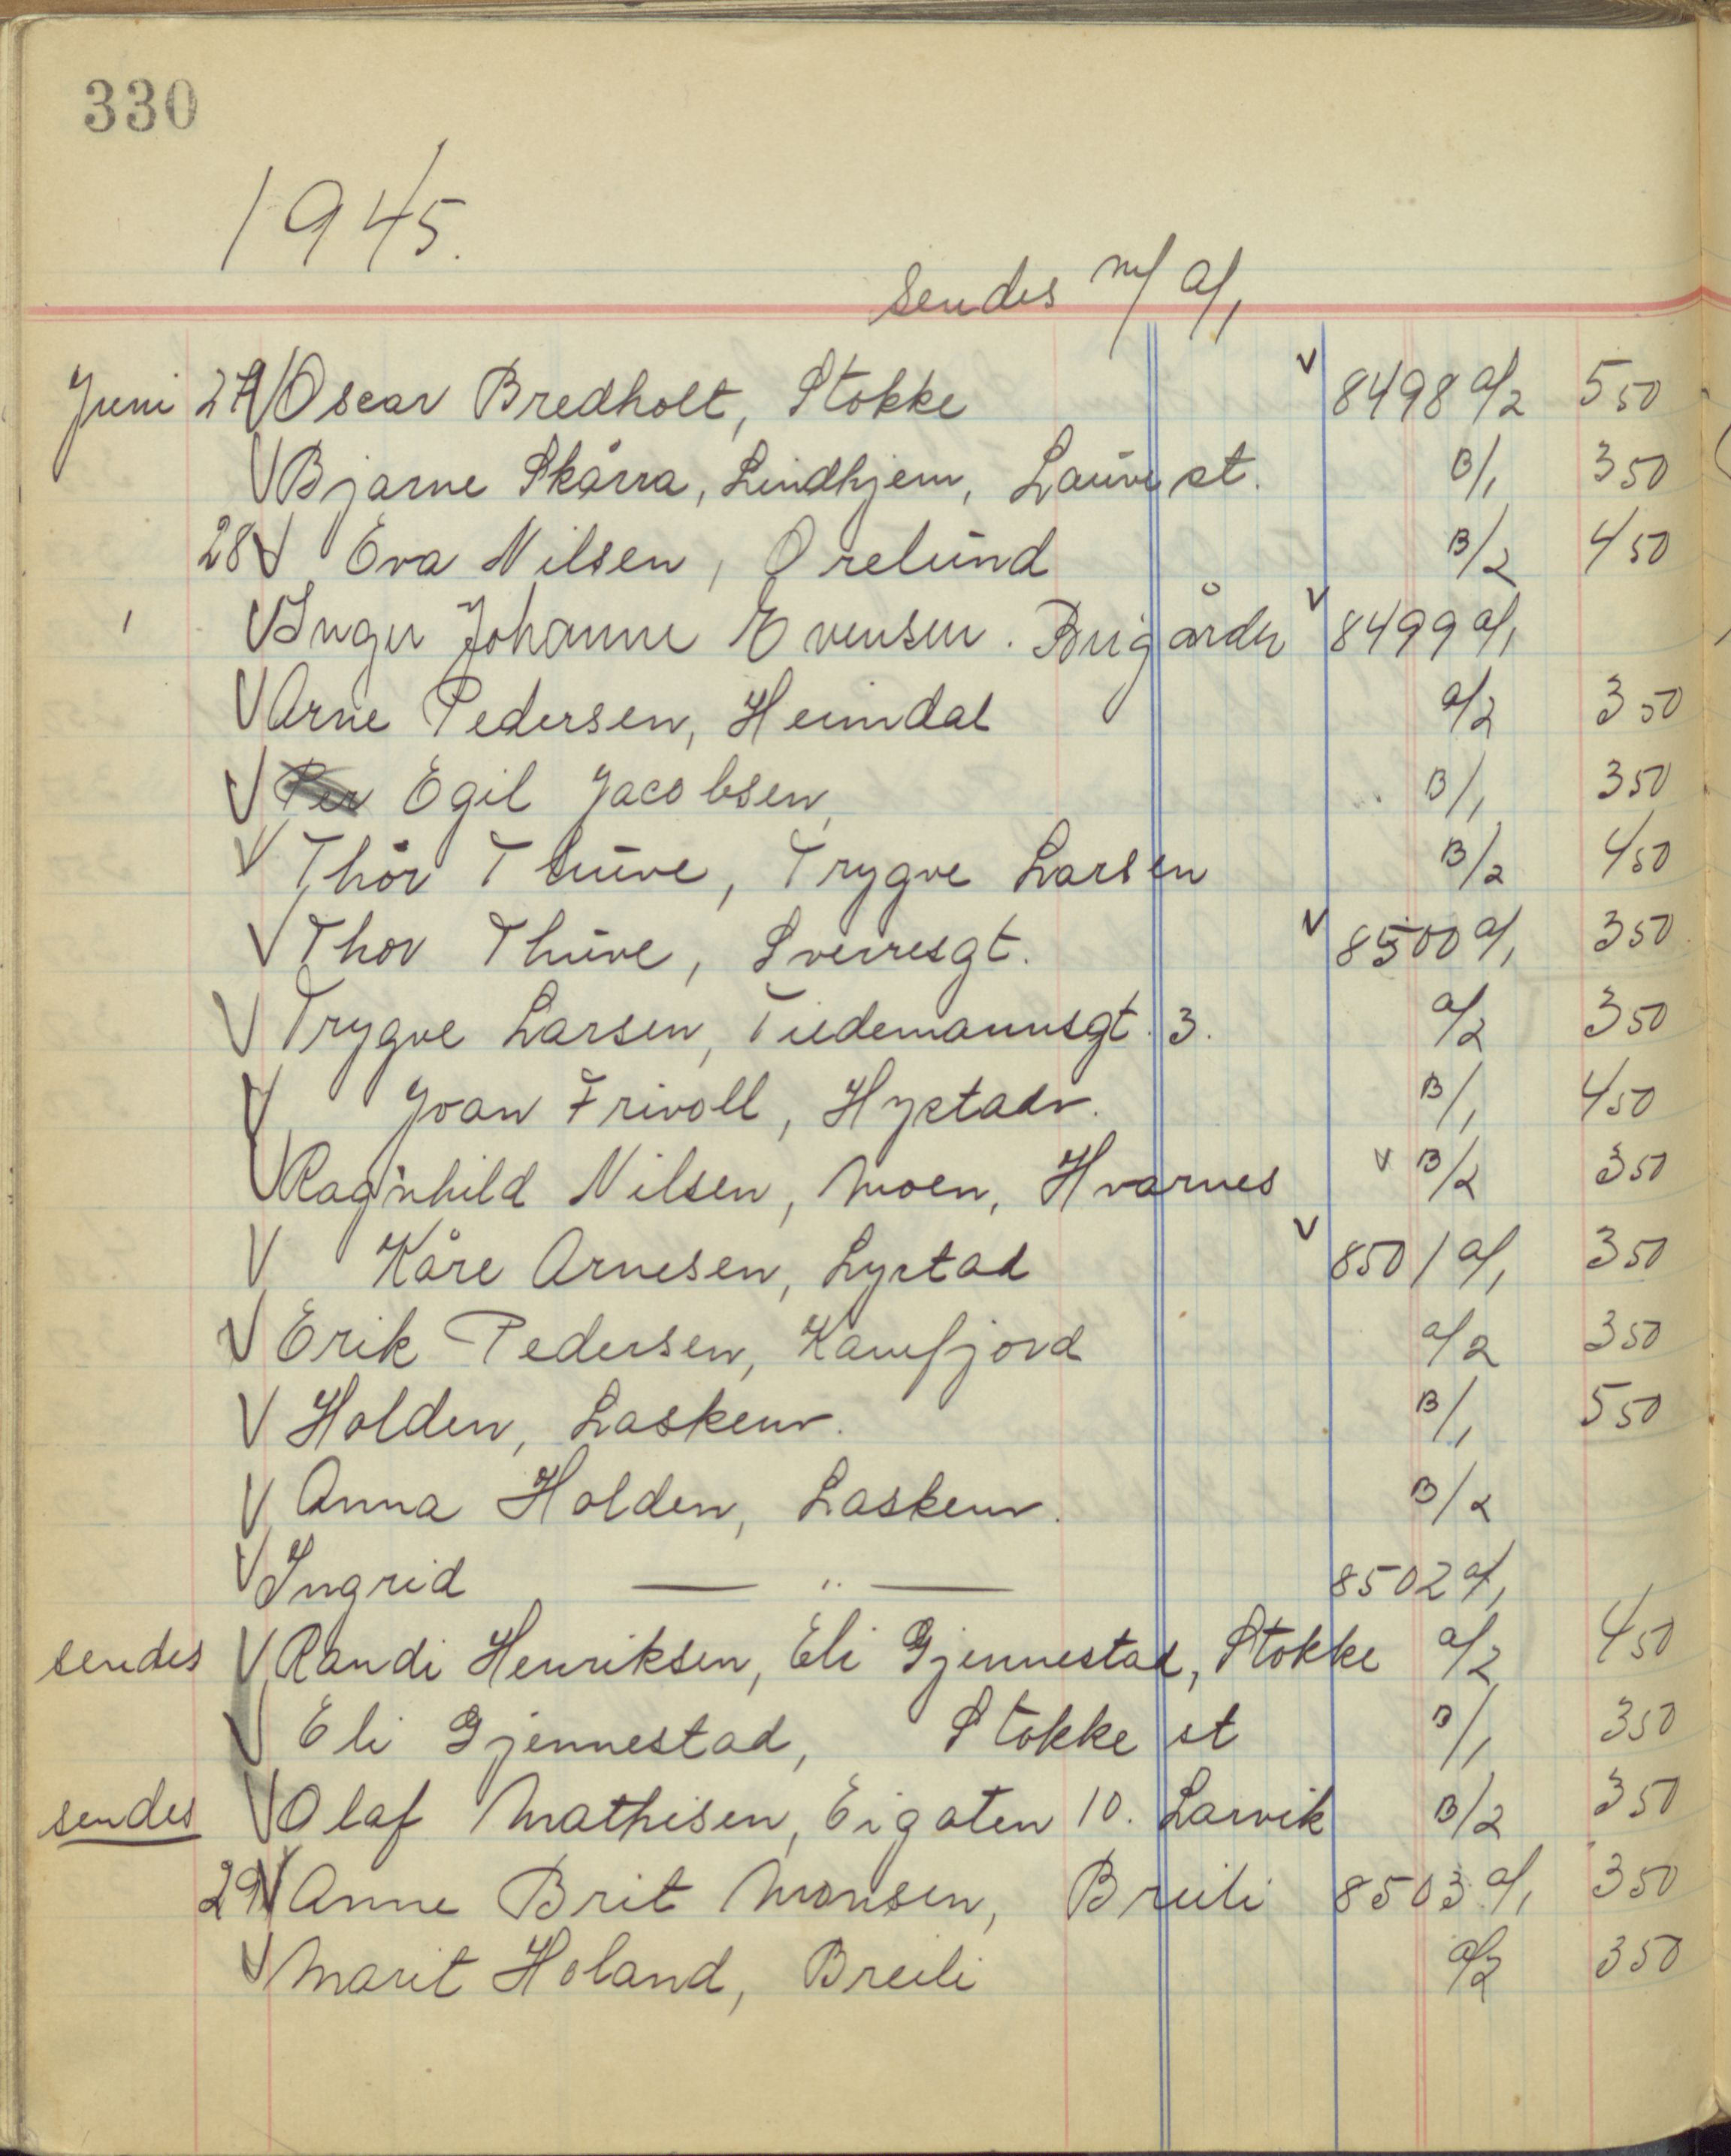 330
1945.
Sendes m/ a/1
Juni 27 V Oscar Bredholt, Stokke V 8498 a/2 5 50
V Bjarne Skårra, Lindhjem, Lauve st. B/1 3 50
28 V Eva Nilsen, Orelund B/2 4 50
V Inger Johanne Evensen. Brigården V 8499 a/1
V Arne Pedersen, Heimdal a/2 3 50
V Per Egil Jacobsen, B/1 3 50
V Thor Thuve, Trygve Larsen B/2 4 50
V Thor Thuve, Sverresgt. V 8500 a/1 3 50
V Trygve Larsen, Tiedemannsgt. 3. a/2 3 50
V Joan Frivoll, Hystadv. B/1 4 50
V Ragnhild Nilsen, Moen, Hvarnes V B/2 3 50
V Kåre Arnesen, Lystad V 8501 a/1 3 50
V Erik Pedersen, Kamfjord a/2 3 50
V Holden, Laskenv. B/1 5 50
V Anna Holden, Laskenv. B/2
V Ingrid — " — 8502 a/1
sendes V Randi Henriksen, Eli Gjennestad, Stokke a/2 4 50
V Eli Gjennestad, Stokke st B/1 3 50
sendes V Olaf Mathisen, Eigaten 10. Larvik B/2 3 50
29 V Anne Brit Monsen, Breili 8503 a/1 3 50
V Marit Holand, Breili a/2 3 50